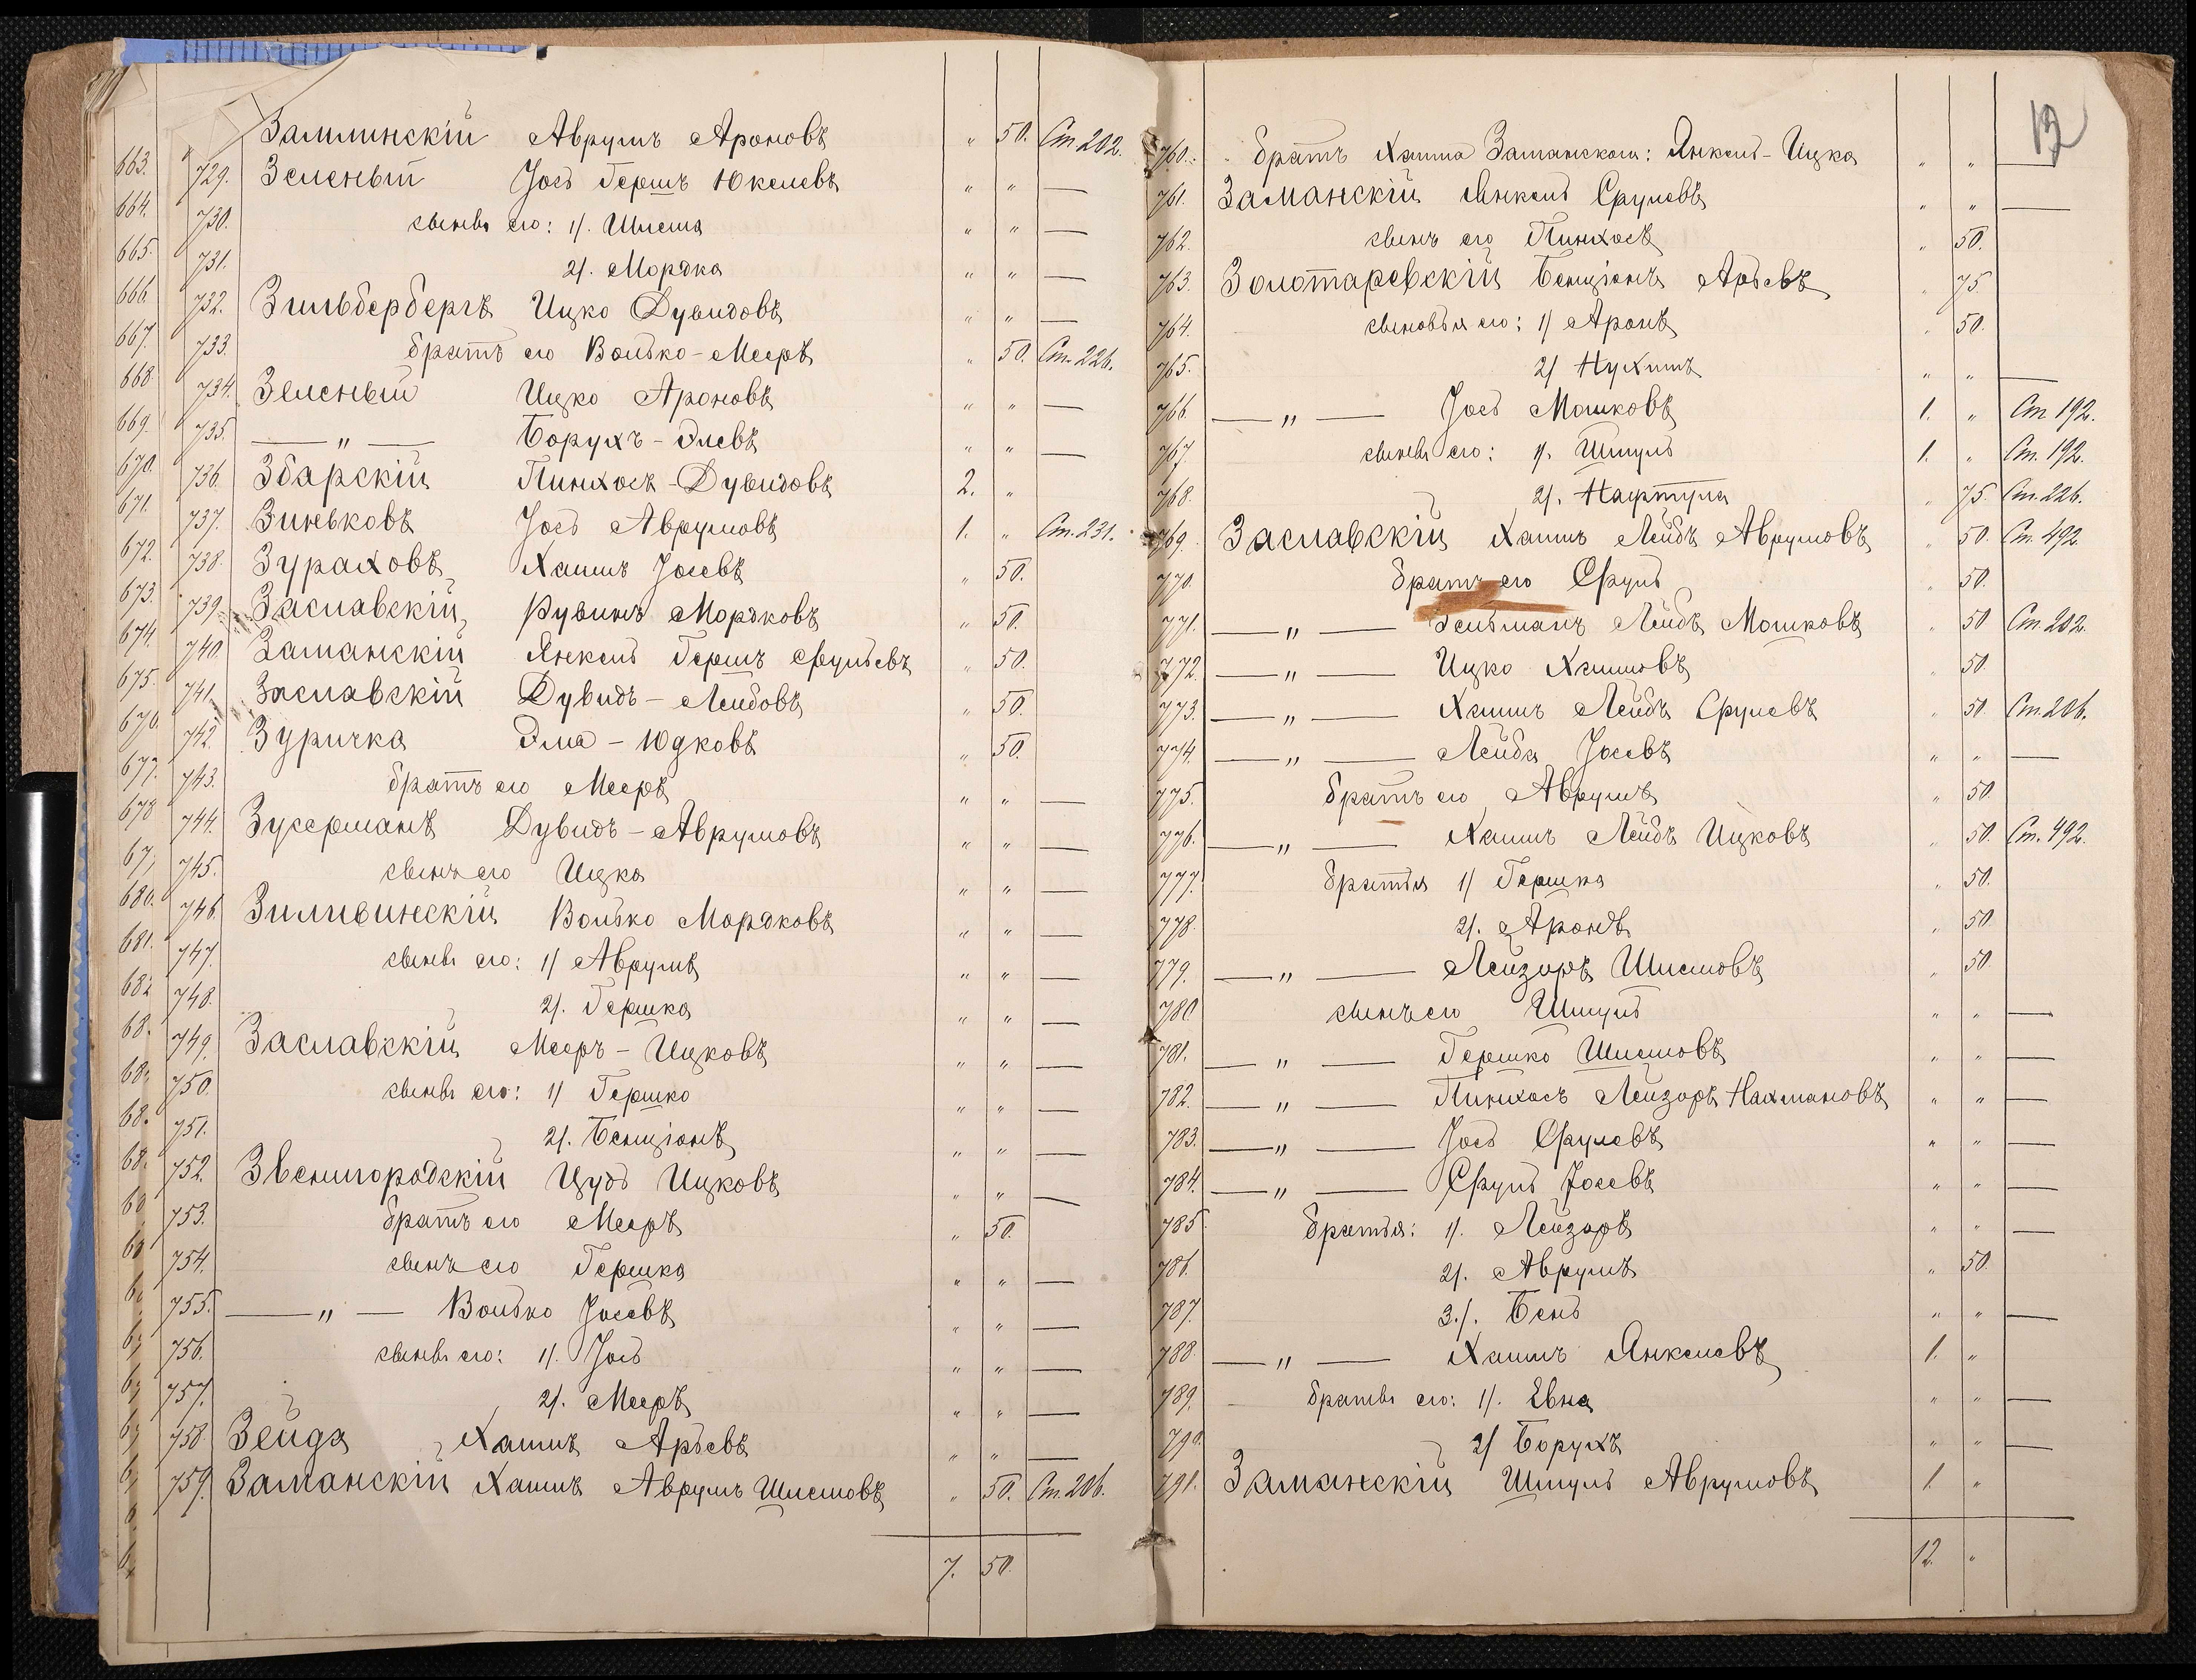 Замлинскій Аврумъ Ароновъ " 50. Ст. 202.
663. 729. Зеленый Іось Гершъ Юкелевъ " " —
664. 730. сыновья его: 1/. Шлема " " —
665. 731. 2/. Мордка " " —
666. 732. Зильбербергъ Ицко Дувидовъ " " —
667. 733. братъ его Волько-Мееръ " 50. Ст. 226.
668 734. Зеленый Ицко Ароновъ " " —
669. 735. — " — Борухъ-Элевъ " " —
670. 736. Збарскій Пинхосъ-Дувидовъ 2. "
671. 737. Зиньковъ Іось Аврумовъ 1. " Ст. 231.
672. 738. Зураховъ Хаимъ Іосевъ " 50.
673. 739. Заславскій Рувинъ Мордковъ " 50.
674. 740. Заманскій Янкель Гершъ Срульевъ " 50.
675. 741. Заславскій Дувидъ-Лейбовъ " 50.
676. 742. Зуричка Эла-Юдковъ " 50.
677. 743. братъ его Мееръ " " —
678 744. Зусерманъ Дувидъ-Аврумовъ " " —
745. сынъ его Ицка " " —
680. 746. Зиливинскій Волько Мордковъ " " —
681. 747. сыновья его: 1/ Аврумъ " " —
682 748. 2/. Гершка " " —
749. Заславскій Мееръ-Ицковъ " " —
750. сыновья его: 1/ Гершко " " —
751. 2/. Бенціонъ " " —
752. Звенигородскій Цудь Ицковъ " " —
753. братъ его Мееръ " 50.
754. сынъ его Гершка " " —
755. — " — Волько Іосевъ " " —
756. сыновья его: 1/. Іось " " —
757. 2/. Мееръ " " —
758. Зейда Хаимъ Арьевъ " " —
759. Заманскій Хаимъ Аврумъ Шлемовъ " 50. Ст. 206.
7. 50.
12
760. братъ Хаима Заманскаго: Янкель-Ицка " " —
761. Заманскій Янкель Срулевъ " " —
762. сынъ его Пинхосъ " 50.
763. Золотаревскій Бенціонъ Арьевъ " 75
764. сыновья его: 1/ Аронъ " 50.
765. 2/ Нухимъ " " —
766. — " — Іось Мошковъ 1. " Ст. 192.
767. сыновья его: 1/. Шмуль 1. " Ст. 192.
768. 2/. Нафтула " 75 Ст. 226.
769. Заславскій Хаимъ Лейбъ Аврумовъ " 50. Ст. 492
770. братъ его Сруль " 50.
771. — " — Гельманъ Лейбъ Мошковъ " 50 Ст. 202.
772. — " — Ицко Хаимовъ " 50.
773. — " — Хаимъ Лейбъ Срулевъ " 50. Ст. 206.
774. — " — Лейба Іосевъ " " —
775. братъ его Аврумъ " 50.
776. — " — Хаимъ Лейбъ Ицковъ " 50. Ст. 492.
777. братья 1/ Гершка " 50.
778. 2/. Аронъ " 50.
779. — " — Лейзоръ Шлемовъ " 50
780. сынъ его Шмуль " " —
781. — " — Гершко Шлемовъ " " —
782. — " — Пинхосъ Лейзоръ Нахмановъ " " —
783. — " — Іось Срулевъ " " —
784. — " — Сруль Іосевъ " " —
785. братья: 1/. Лейзоръ " " —
786. 2/. Аврумъ " 50.
787. 3./. Бень " " —
788. — " — Хаимъ Янкелевъ 1. "
789. братья его: 1/. Евна " " —
790. 2/ Борухъ " " —
791. Заманскій Шмуль Аврумовъ 1. "
12. "